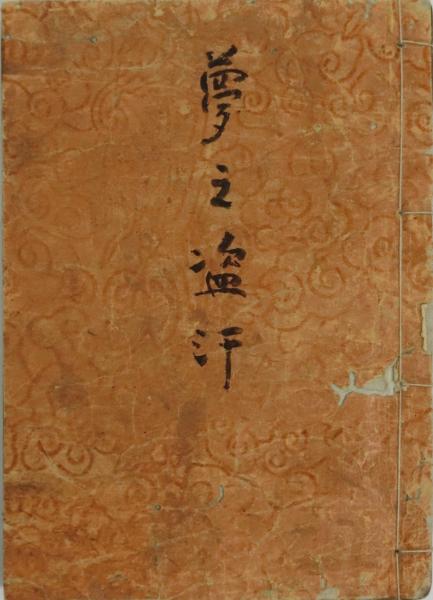 夢之盗汗